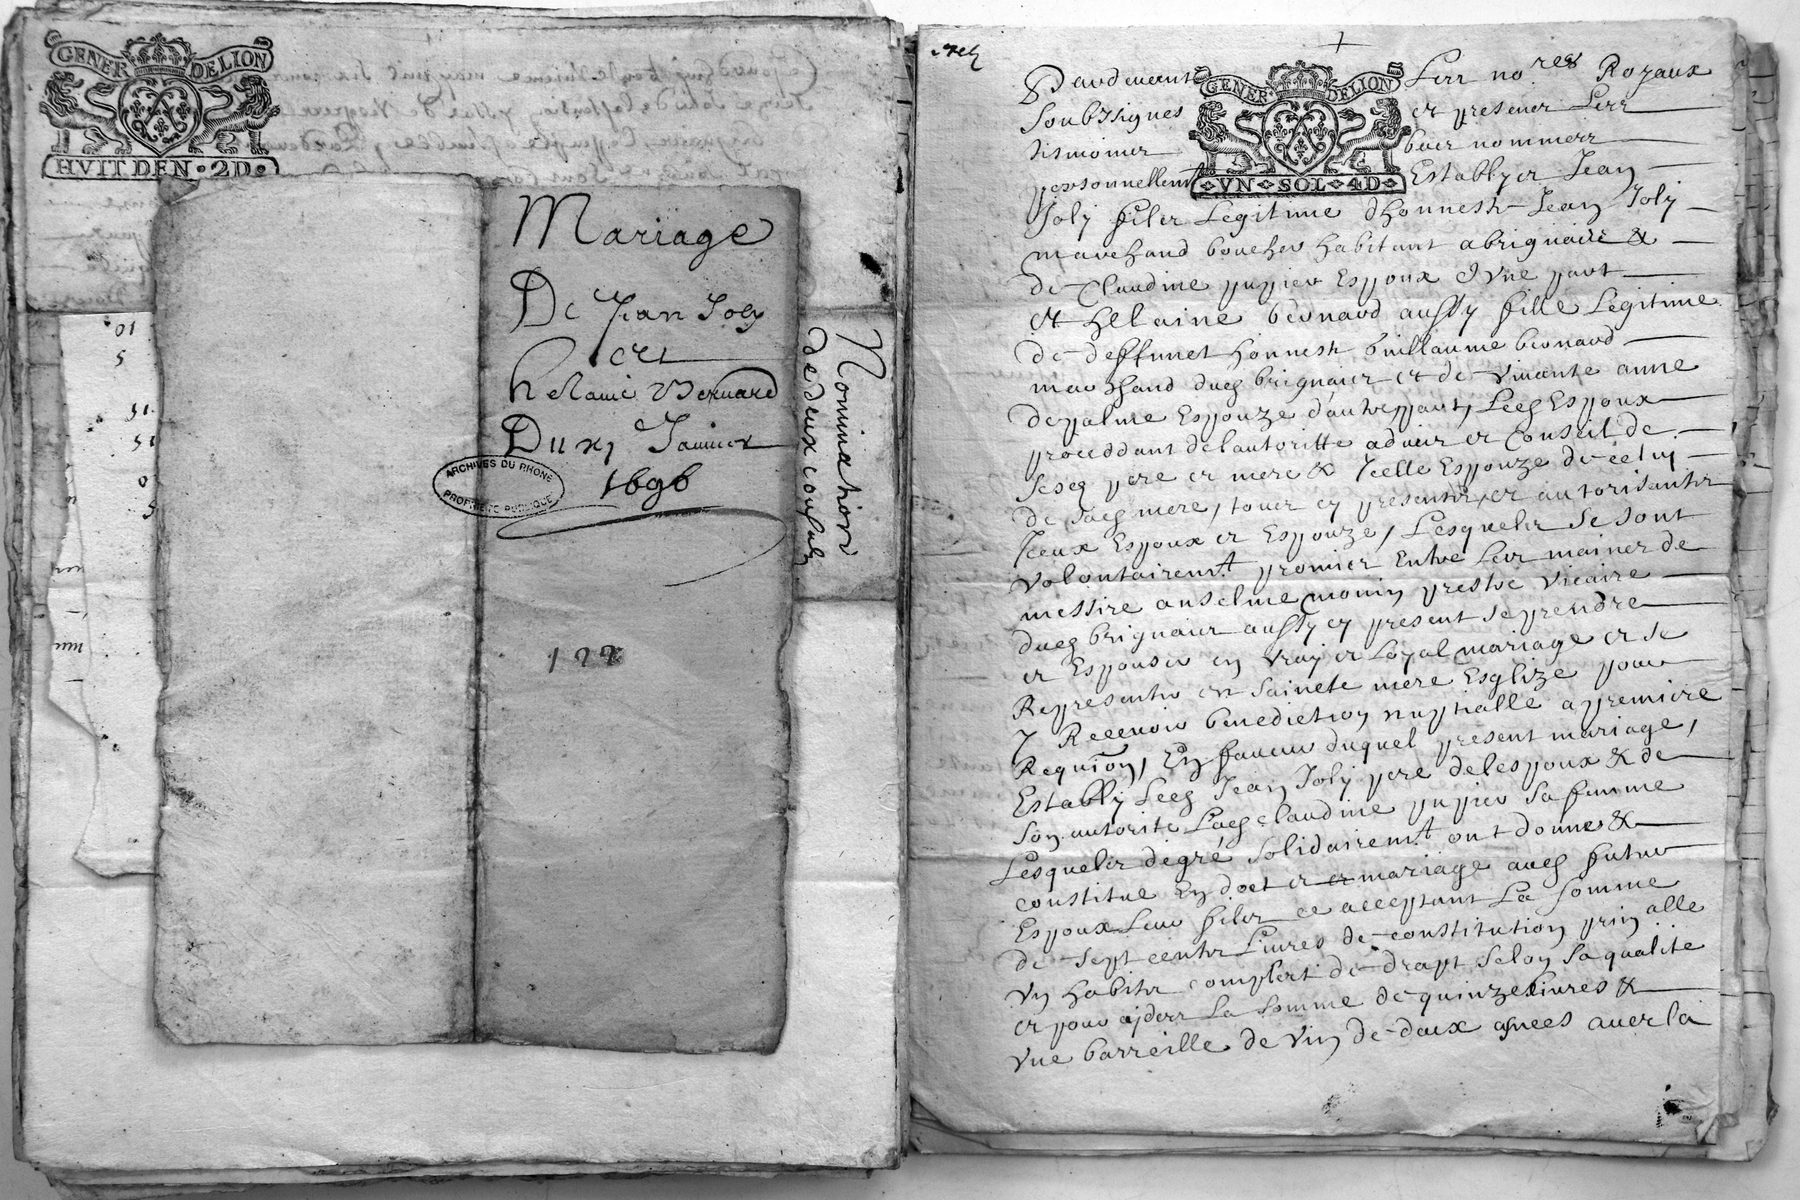 GENER DE LION
HVIT DEN · 2D ·
10
5
15
15
0
5
Mariage
De Jean Joly
et
helaine Bernard
Du xj Januier
1696
ARCHIVES DU RHONE
PROPRIETE PUBLIQUE
122
Nomination
de deux consulz
GENER DE LION
VN SOL 4D
Pardeuant Les no.res Royaux
Soubzsignes et presence Les
tismoins bas nommes
personnellem.t Establyes Jean
Joly filz Legitime dhonneste Jean Joly
marchand boucher habitant a brignais &
de Claudine pupier Espoux dvne part
Et helaine bernard aussy fille Legitime
de deffunct honneste Guillaume bernard
marchand dud brignais et de viuante anne
depalme Espouze d'autre part, Led Espoux
proceddant de lautoritte aduis et Conseil de
Sesd pere et mere & Jcelle Espouze de celuy
de sad mere, tous cy presents, et autorisants
Jceux Espoux et Espouze, Lesquels Se sont
volontairem.t promis Entre Les mains de
messire anselme monin prestre vicaire
dud brignais aussy cy present se prendre
et Espouser en vray et Loyal mariage et se
Representer en saincte mere Esglize pour
y Receuoir benediction nuptialle a premiere
Requion, En faueur duquel present mariage,
Estably Led Jean Joly pere de lespoux & de
Son autorité Lad claudine pupier sa femme
Lesquels de gré solidairem.t ont donné &
constitue En doct et mariage aud futur
Espoux Leur filz ce acceptant La somme
de sept cents Liures de constitution prin.alle
vn habits complect de drapt selon sa qualité
et pour ayders la somme de quinze liures &
vne barreille de vin de deux asnees auec la